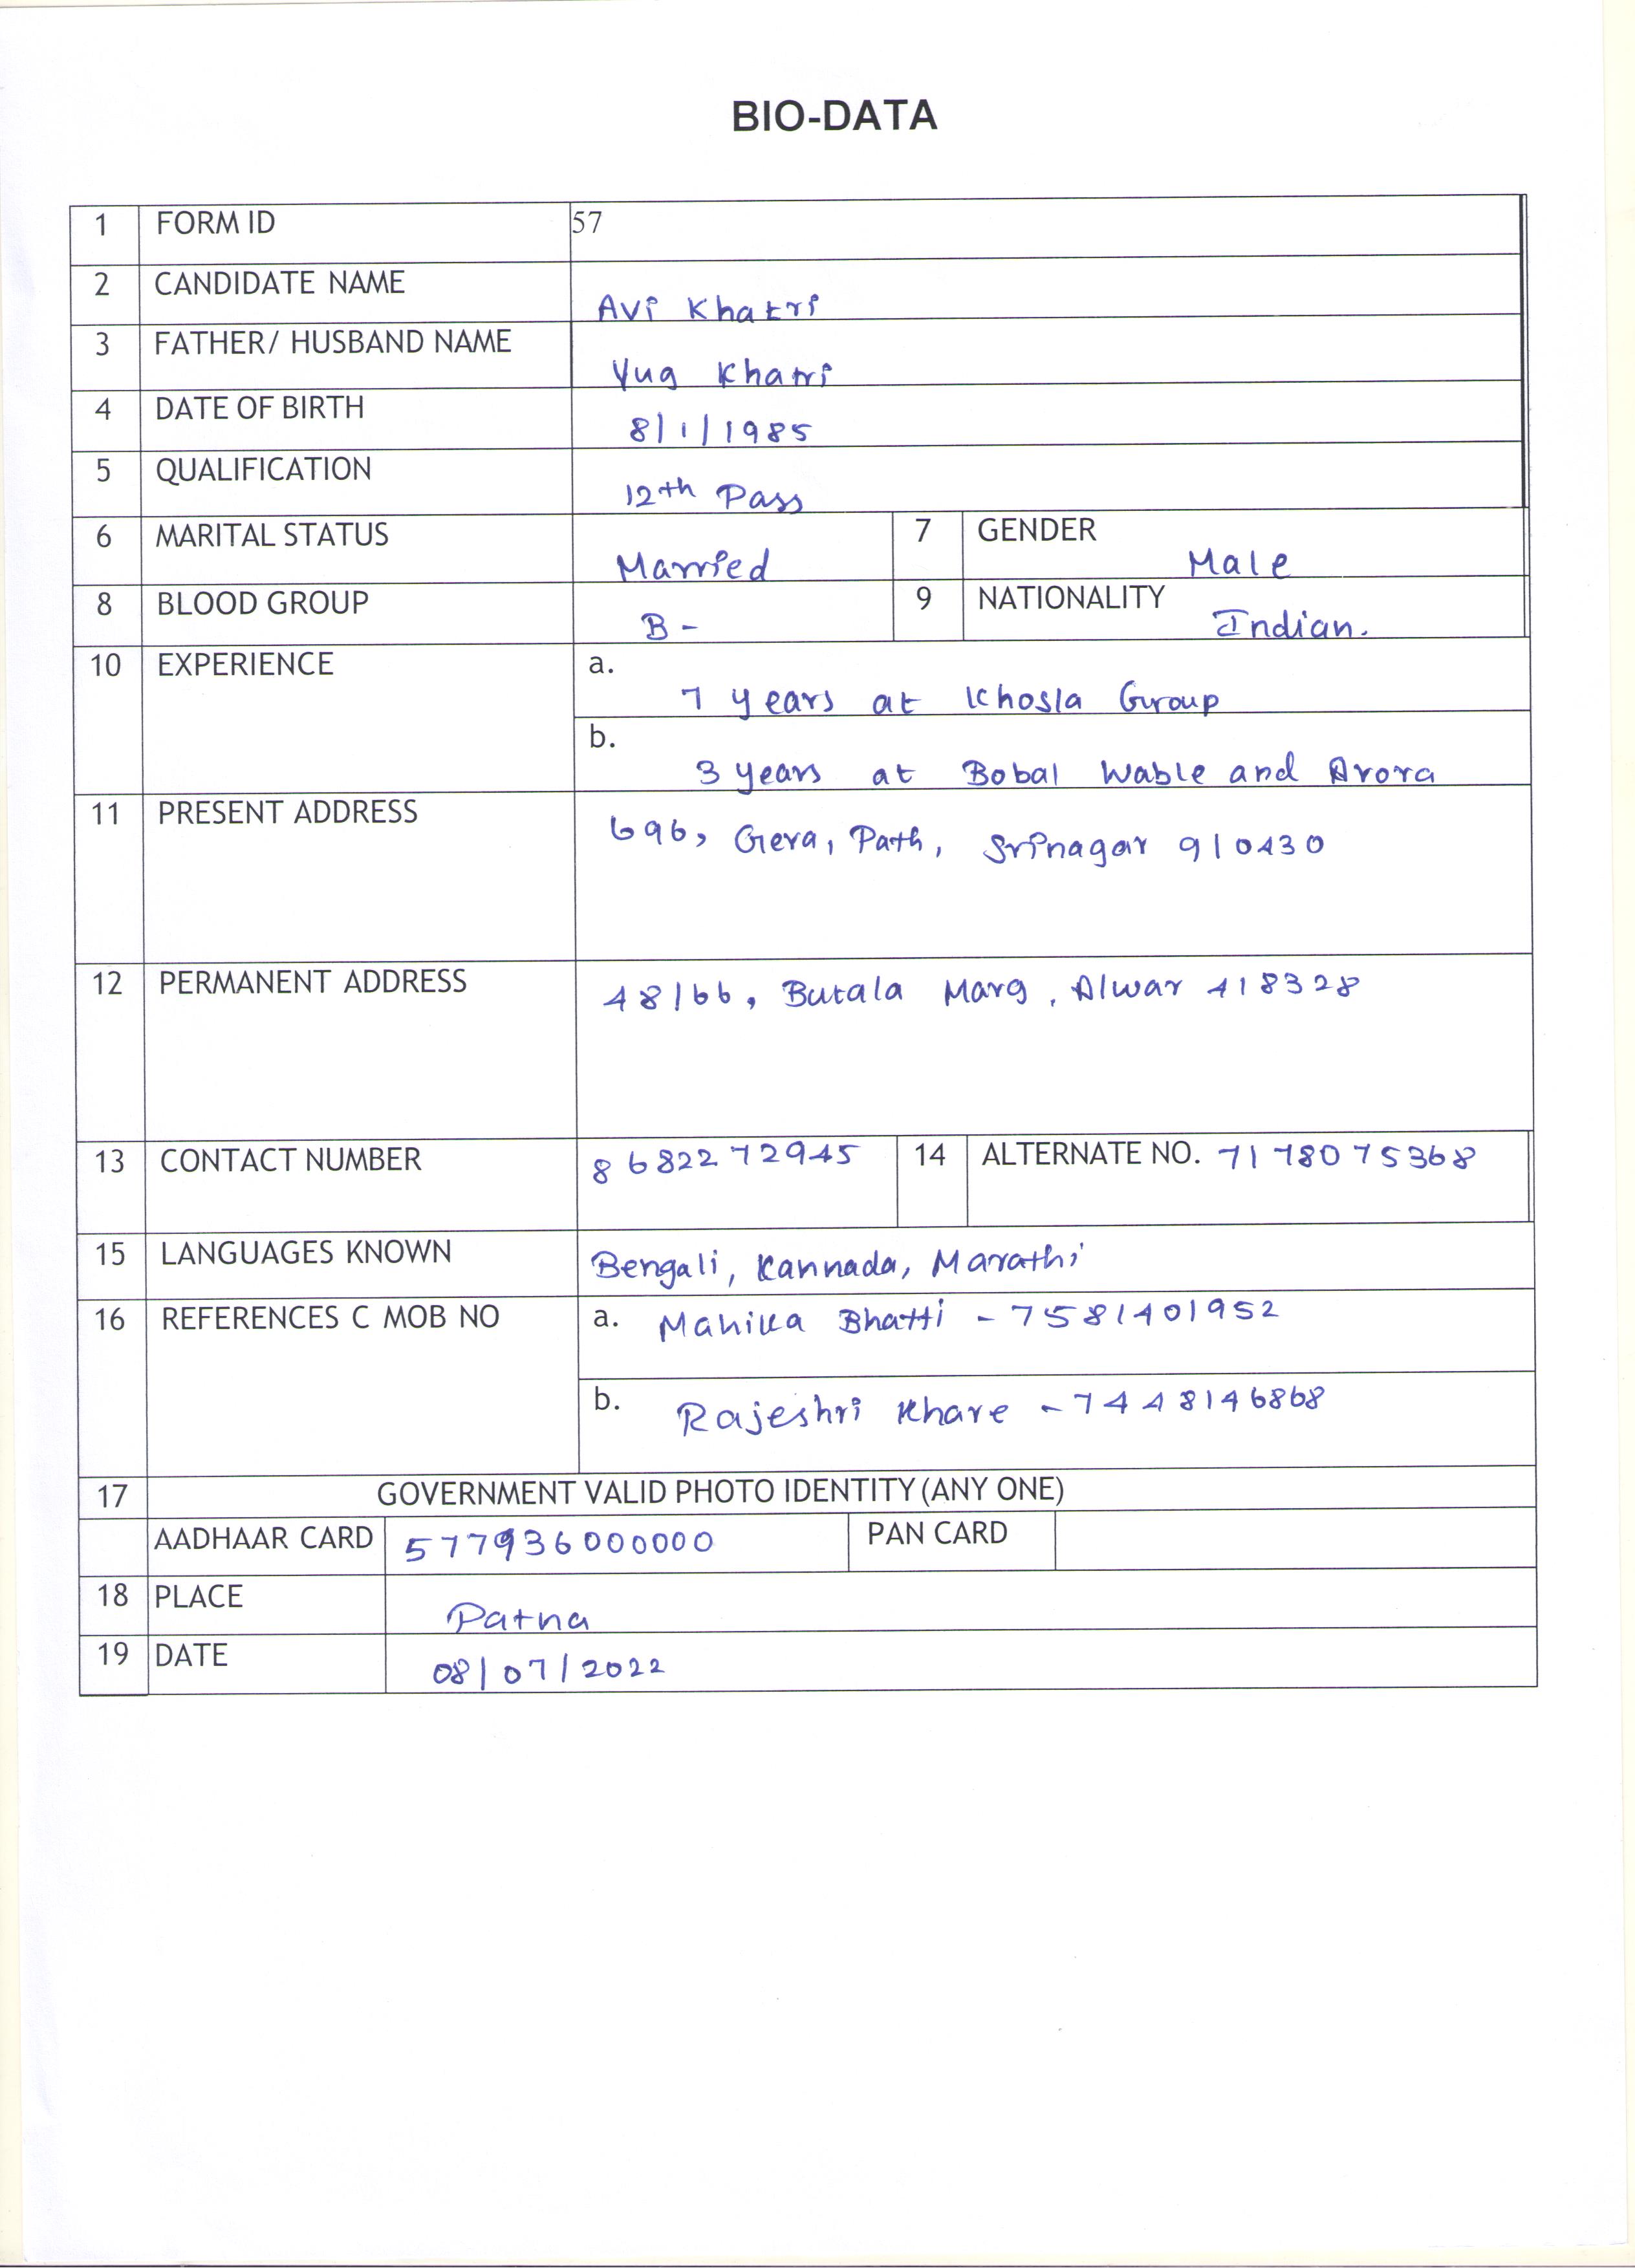 BIO-DATA
1 FORM ID 57
2 CANDIDATE NAME Avi Khatri
3 FATHER/ HUSBAND NAME Yug Khatri
4 DATE OF BIRTH 8/1/1985
5 QUALIFICATION 12th Pass
6 MARITAL STATUS Married 7 GENDER Male
8 BLOOD GROUP B- 9 NATIONALITY Indian.
10 EXPERIENCE a. 7 years at Khosla Group
b. 3 years at Bobal Wable and Arora
11 PRESENT ADDRESS 696, Gera, Path, Srinagar 910430
12 PERMANENT ADDRESS 48/66, Butala Marg, Alwar 418328
13 CONTACT NUMBER 8682272945 14 ALTERNATE NO. 7178075368
15 LANGUAGES KNOWN Bengali, Kannada, Marathi
16 REFERENCES C MOB NO a. Mahika Bhatti - 7581401952
b. Rajeshri Khare - 7448146868
17 GOVERNMENT VALID PHOTO IDENTITY (ANY ONE)
AADHAAR CARD 577936000000 PAN CARD
18 PLACE Patna
19 DATE 08/07/2022